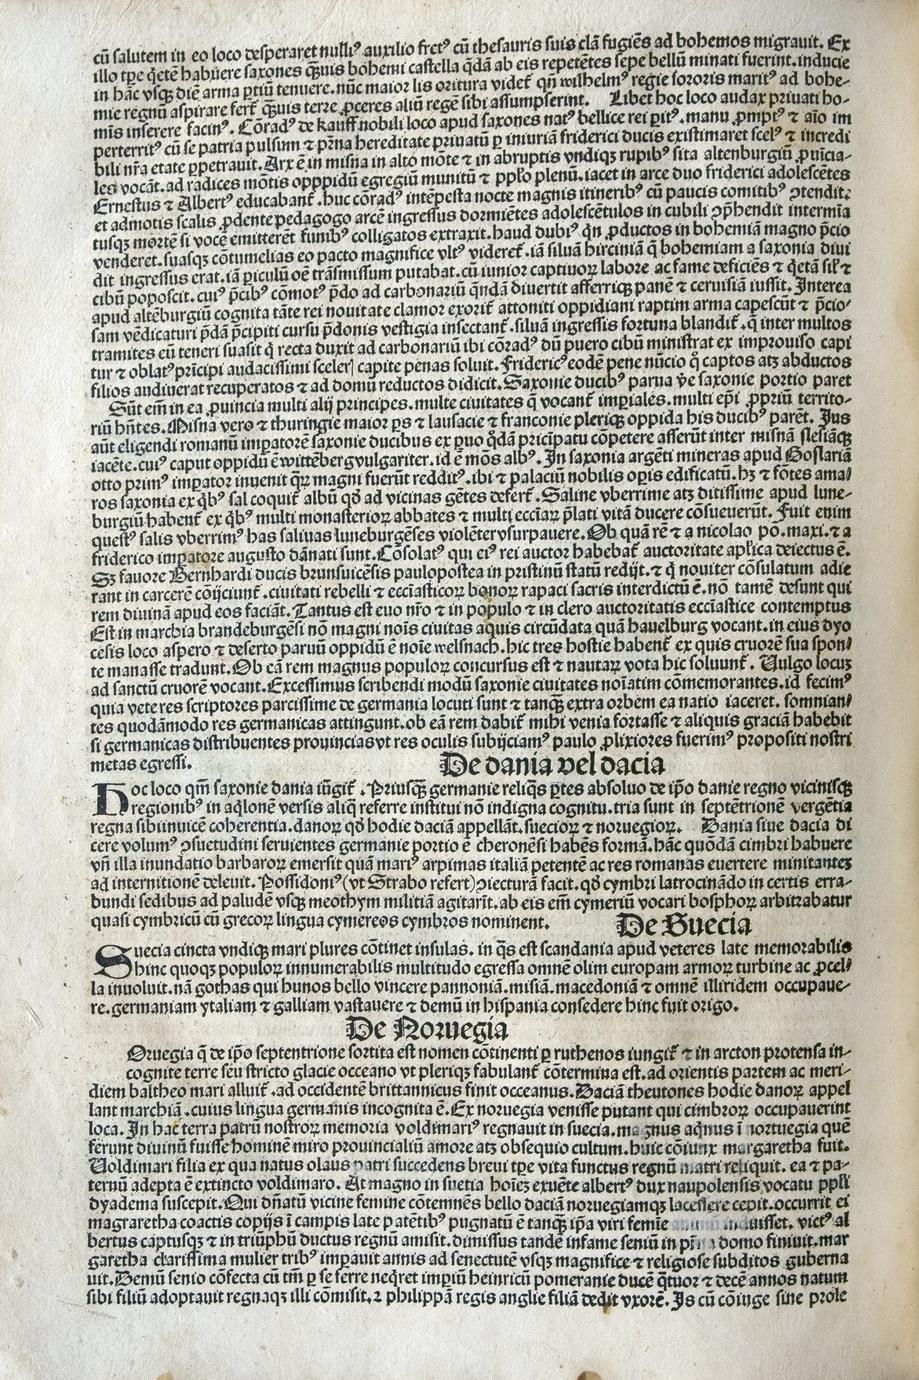 cũ salutem in eo loco desperaret nulliꝰ auxilio fretꝰ cũ thesauris suis clã fugiẽs ad bohemos migrauit. Ex
illo tꝑe q̃tẽ habuere saxones q̃ꝫuis bohemi castella q̃dã ab eis repetẽtes sepe bellũ minati fuerint. inducie
in hãc vsqꝫ diẽ arma ꝑtiũ tenuere. nũc maior lis oritura videt̃ qñ wilhelmꝰ regie sororis maritꝰ ad bohe-
mie regnũ aspirare fert̃ q̃ꝫuis terre ꝓceres aliũ regẽ sibi assumpserint. Libet hoc loco audax priuati ho-
mĩs inserere facinꝰ. Cõradꝰ de kauff nobili loco apud saxones natꝰ bellice rei ꝑitꝰ. manu ꝓmptꝰ ⁊ aĩo im
perterritꝰ cũ se patria pulsum ⁊ pr̃na hereditate priuatũ ꝑ iniuriã friderici ducis existimaret scelꝰ ⁊ incredi
bili nr̃a etate ꝑpetrauit. Arx ẽ in misna in alto mõte ⁊ in abruptis vndiqꝫ rupibꝰ sita altenburgiũ ꝓuicia-
les vocãt. ad radices mõtis opppidũ egregiũ munitũ ⁊ pplo plenũ. iacet in arce duo friderici adolescẽtes
Ernestus ⁊ Albertꝰ educabant̃. huc cõradꝰ intẽpesta nocte magnis itineribꝰ cũ paucis comitibꝰ ꝯtendit.
et admotis scalis ꝓdente pedagogo arcẽ ingressus dormiẽtes adolescẽtulos in cubili ꝯp̃hendit intermĩa
tusqꝫ mortẽ si vocẽ emitterẽt funibꝰ colligatos extraxit. haud dubiꝰ q̃n ꝓductos in bohemiã magno p̃cio
venderet. suasqꝫ cõtumelias eo pacto magnifice vltꝰ videret̃. iã siluã hirciniã q̃ bohemiam a saxonia diui
dit ingressus erat. iã ꝑiculũ oẽ trãsmissum putabat. cũ iunior captiuoꝝ labore ac fame deficiẽs ⁊ q̃etã sil̃ ⁊
cibũ poposcit. cuiꝰ p̃cibꝰ cõmotꝰ p̃do ad carbonariũ q̃ndã diuertit afferriqꝫ panẽ ⁊ ceruisiã iussit. Interea
apud altẽburgiũ cognita tãte rei nouitate clamor exorit̃ attoniti oppidiani raptim arma capescũt ⁊ p̃cio-
sam vẽdicaturi p̃dã p̃cipiti cursu p̃donis vestigia insectant̃. siluã ingressis fortuna blandit̃. q̃ inter multos
tramites eũ teneri suasit q̃ recta duxit ad carbonariũ ibi cõradꝰ dũ puero cibũ ministrat ex improuiso capi
tur ⁊ oblatꝰ prĩcipi audacissimi sceleꝝ capite penas soluit. Fridericꝰ eodẽ pene nũcio q̃ captos atqꝫ abductos
filios audiuerat recuperatos ⁊ ad domũ reductos didicit. Saxonie ducibꝰ parua ṽe saxonie portio paret
Sũt em̃ in ea ꝓuincia multi alij principes. multe ciuitates q̃ vocant̃ imꝑiales. multi ep̃i ꝓpriũ territo-
riũ hñtes. Misna vero ⁊ thuringie maior ꝑs ⁊ lausacie ⁊ franconie pleriqꝫ oppida his ducibꝰ parẽt. Jus
aũt eligendi romanũ imꝑatorẽ saxonie ducibus ex ꝑuo q̃dã prĩcipatu cõpetere asserũt inter misnã slesiãqꝫ
iacẽte. cuiꝰ caput oppidũ ẽ wittẽberg vulgariter. id ẽ mõs albꝰ. In saxonia argẽti mineras apud Goslariã
otto primꝰ imꝑator inuenit q̃r magni fuerũt redditꝰ. ibi ⁊ palaciũ nobilis oꝑis edificatũ. hꝫ ⁊ fõtes ama-
ros saxonia ex q̃bꝰ sal coquit̃ albũ qđ ad vicinas gẽtes defert̃. Saline vberrime atqꝫ ditissime apud lune-
burgiũ habent̃ ex q̃bꝰ multi monasterioꝝ abbates ⁊ multi eccĩaꝝ p̃lati vitã ducere cõsueuerũt. Fuit enim
questꝰ salis vberrimꝰ has saliuas luneburgẽses violẽter vsurpauere. Ob quã rẽ ⁊ a nicolao põ. maxi. ⁊ a
friderico imꝑatore augusto dãnati sunt. Cõsolatꝰ qui eiꝰ rei auctor habebat̃ auctoritate apl̃ica deiectus ẽ.
Sꝫ fauore Bernhardi ducis brunsuicẽsis paulopostea in pristinũ statũ redijt. ⁊ q̃ nouiter cõsulatum adie
rant in carcerẽ cõijciunt̃. ciuitati rebelli ⁊ eccĩasticoꝝ bonoꝝ rapaci sacris interdictũ ẽ. nõ tamẽ desunt qui
rem diuinã apud eos faciãt. Tantus est euo nr̃o ⁊ in populo ⁊ in clero auctoritatis eccĩastice contemptus
Est in marchia brandeburgẽsi nõ magni noĩs ciuitas aquis circũdata quã hauelburg vocant. in eius dyo
cesis loco aspero ⁊ deserto paruũ oppidũ ẽ noĩe welsnach. hic tres hostie habent̃ ex quis cruorẽ sua spon-
te manasse tradunt. Ob eã rem magnus populoꝝ concursus est ⁊ nautaꝝ vota hic soluunt̃. Uulgo locuꝫ
ad sanctũ cruorẽ vocant. Excessimus scribendi modũ saxonie ciuitates noĩatim cõmemorantes. id fecimꝰ
quia veteres scriptores parcissime de germania locuti sunt ⁊ tanqꝫ extra orbem ea natio iaceret. somnian-
tes quodãmodo res germanicas attingunt. ob eã rem dabit̃ mihi venia fortasse ⁊ aliquis graciã habebit
si germanicas distribuentes prouincias vt res oculis subijciamꝰ paulo ꝓlixiores fuerimꝰ propositi nostri
metas egressi.
De dania vel dacia
Hoc loco qm̃ saxonie dania iũgit̃. Priusqꝫ germanie reliq̃s ꝑtes absoluo de ip̃o danie regno vicinisqꝫ
regionibꝰ in aq̃lonẽ versis aliq̃ referre institui nõ indigna cognitu. tria sunt in septẽtrionẽ vergẽtia
regna sibiinuicẽ coherentia. danoꝝ qđ hodie daciã appellãt. suecioꝝ ⁊ noruegioꝝ. Dania siue dacia di
cere volumꝰ ꝯsuetudini seruientes germanie portio ẽ cheronẽsi habẽs formã. hãc quõdã cimbri habuere
vñ illa inundatio barbaroꝝ emersit quã mariꝰ arpimas italiã petentẽ ac res romanas euertere minitantez
ad internitionẽ deleuit. Possidoniꝰ (vt Strabo refert) ꝯiecturã facit. qđ cymbri latrocinãdo in certis erra-
bundi sedibus ad paludẽ vsqꝫ meothym militiã agitarĩt. ab eis em̃ cymeriũ vocari bosphoꝝ arbitrabatur
quasi cymbricũ cũ grecoꝝ lingua cymereos cymbros nominent.
De Suecia
Suecia cincta vndiqꝫ mari plures cõtinet insulas. in q̃s est scandania apud veteres late memorabilis
hinc quoqꝫ populoꝝ innumerabilis multitudo egressa omnẽ olim europam armoꝝ turbine ac ꝓcel-
la inuoluit. nã gothas qui hunos bello vincere pannoniã. misiã. macedoniã ⁊ omnẽ illiridem occupaue-
re. germaniam ytaliam ⁊ galliam vastauere ⁊ demũ in hispania consedere hinc fuit origo.
De Noruegia
Oruegia q̃ de ip̃o septentrione sortita est nomen cõtinenti ꝑ ruthenos iungit̃ ⁊ in arcton protensa in-
cognite terre seu stricto glacie occeano vt pleriqꝫ fabulant̃ cõtermina est. ad orientis partem ac meri-
diem baltheo mari alluit̃. ad occidentẽ brittannicus finit occeanus. Daciã theutones hodie danoꝝ appel
lant marchiã. cuius lingua germanis incognita ẽ. Ex noruegia venisse putant qui cimbroꝝ occupauerint
loca. In hac terra patrũ nostroꝝ memoria voldimarꝰ regnauit in suecia. magnus aq̃nus ĩ nortuegia quẽ
ferunt diuinũ fuisse hominẽ miro prouincialiũ amore atqꝫ obsequio cultum. huic cõiunx margaretha fuit.
Uoldimari filia ex qua natus olaus patri succedens breui tꝑe vita functus regnũ matri reliquit. ea ⁊ pa-
ternũ adepta ẽ extincto voldimaro. At magno in suetia hoĩez exuẽte albertꝰ dux naupolensis vocatu ppli
dyadema suscepit. Qui dñatũ vicine femine cõtemnẽs bello daciã noruegiamqꝫ lacessere cepit. occurrit ei
magraretha coactis copijs ĩ campis late patẽtibꝰ pugnatũ ẽ tanqꝫ ip̃a viri femĩe induisset. victꝰ al
bertus captusqꝫ ⁊ in triũphũ ductus regnũ amisit. dimissus tandẽ infame seniũ in domo finiuit. mar
garetha clarissima mulier tribꝰ imꝑauit annis ad senectutẽ vsqꝫ magnifice ⁊ religiose subditos guberna
uit. Demũ senio cõfecta cũ tm̃ ꝑ se ferre neq̃ret imꝑiũ heinricũ pomeranie ducẽ q̃tuor ⁊ decẽ annos natum
sibi filiũ adoptauit regnaqꝫ illi cõmisit. ⁊ philippã regis anglie filiã dedit vxorẽ. Is cũ cõiuge sine prole